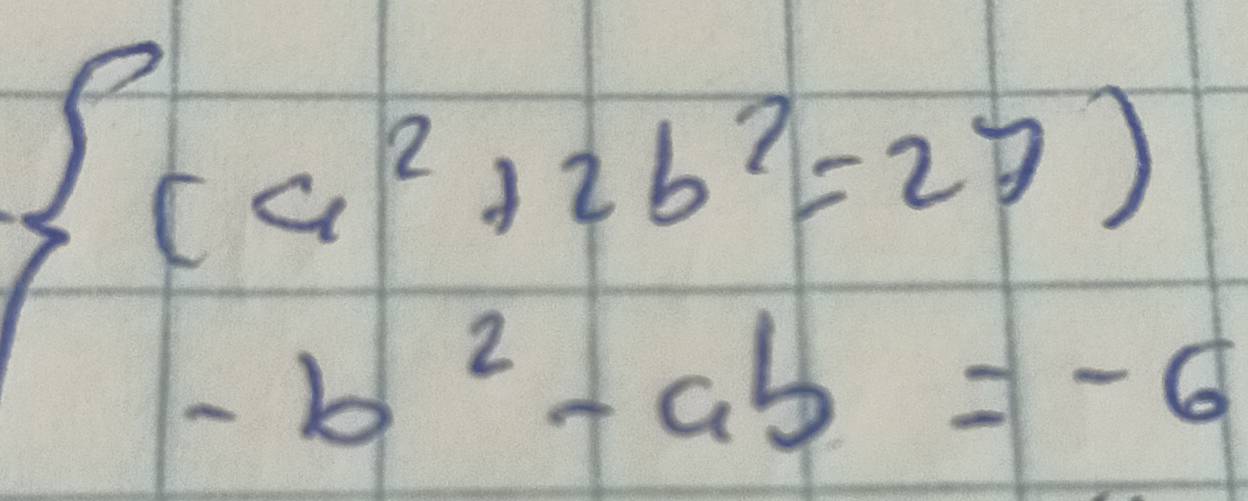 { (a² + 2b² = 27)
- b² - ab = - 6